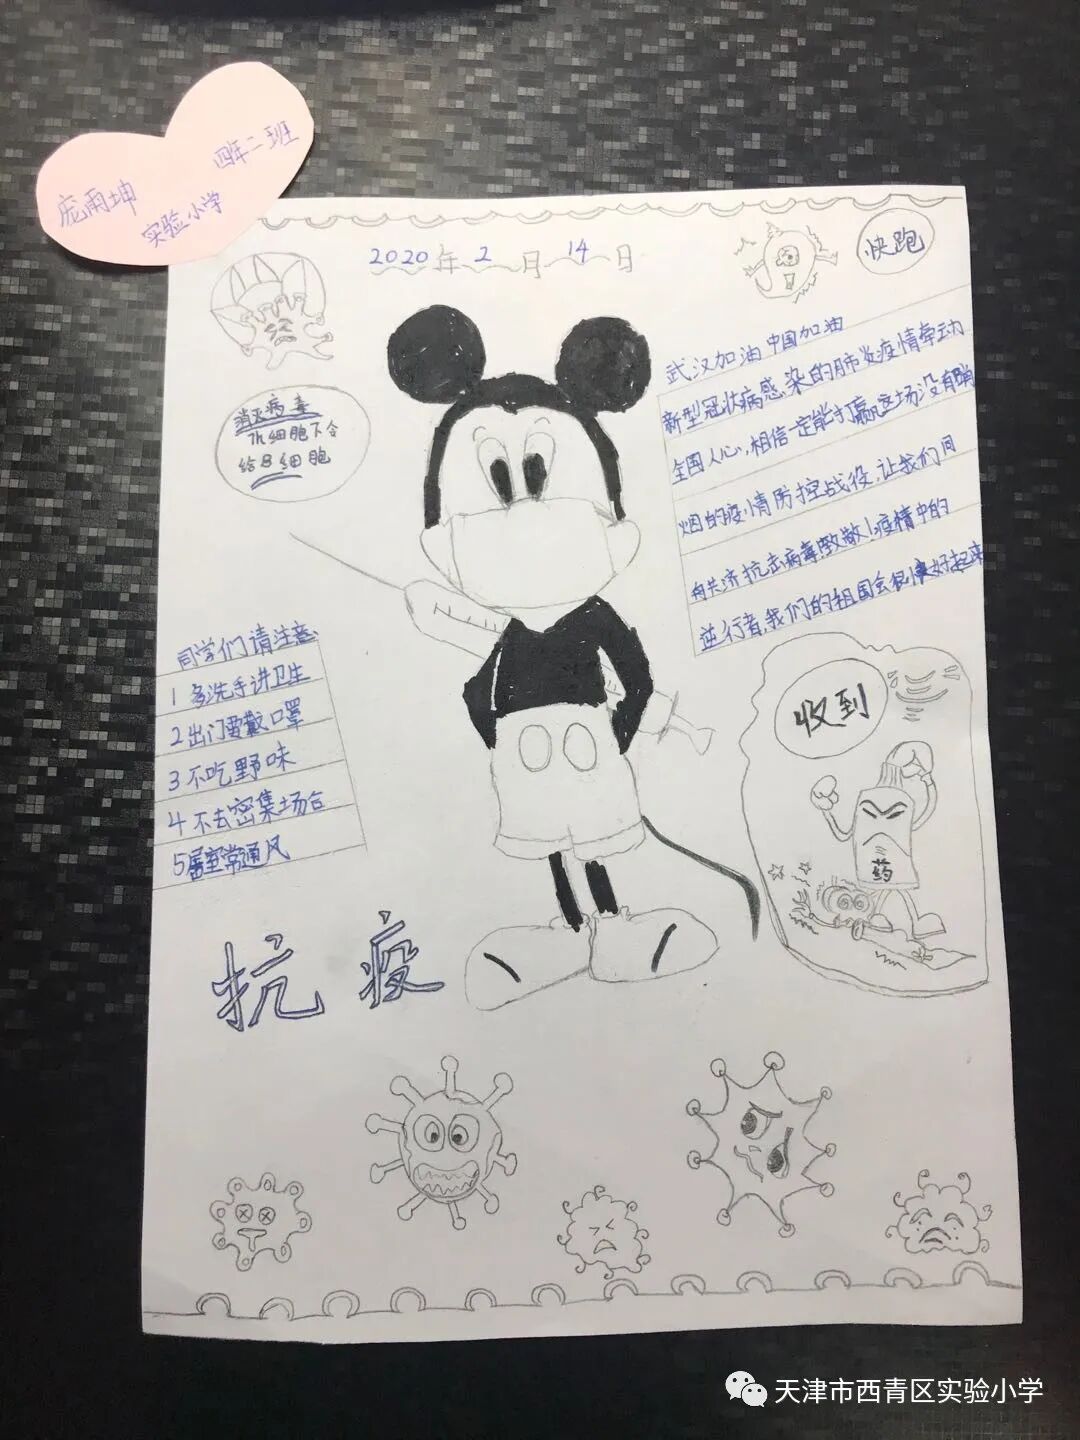 四年二班
庞雨坤
实验小学
2020年2月14日
快跑
武汉加油 中国加油
新型冠状病感染的肺炎疫情牵动
全国人心,相信一定能打赢这场没有硝
烟的疫情防控战役,让我们同
舟共济抗击病毒,致敬!疫情中的
逆行者,我们的祖国会很快好起来
消灭病毒
Th细胞下令
给B细胞
收到
药
同学们请注意:
1 多洗手讲卫生
2 出门要戴口罩
3 不吃野味
4 不去密集场合
5 居室常通风
抗疫
天津市西青区实验小学